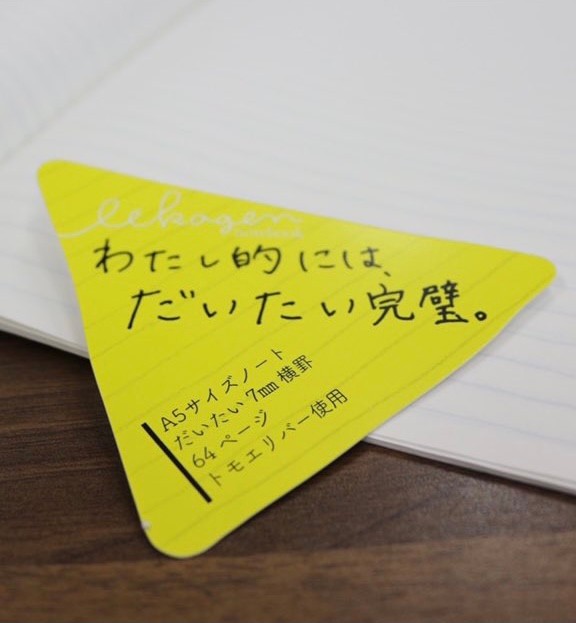 iikagen
notebook
わたし的には、
だいたい完璧。
A5サイズノート
だいたい7mm横罫
64ページ
トモエリバー使用